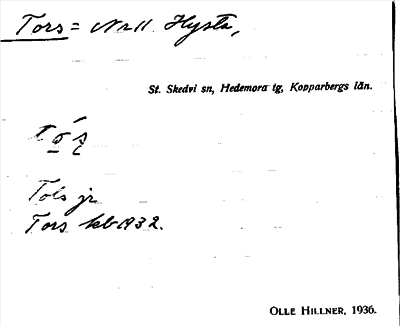 Tors = Nr 11 Hysta,
St. Skedvi sn, Hedemora tg, Kopparbergs län.
Tols jr
Tors kb 1932.
OLLE HILLNER, 1936.